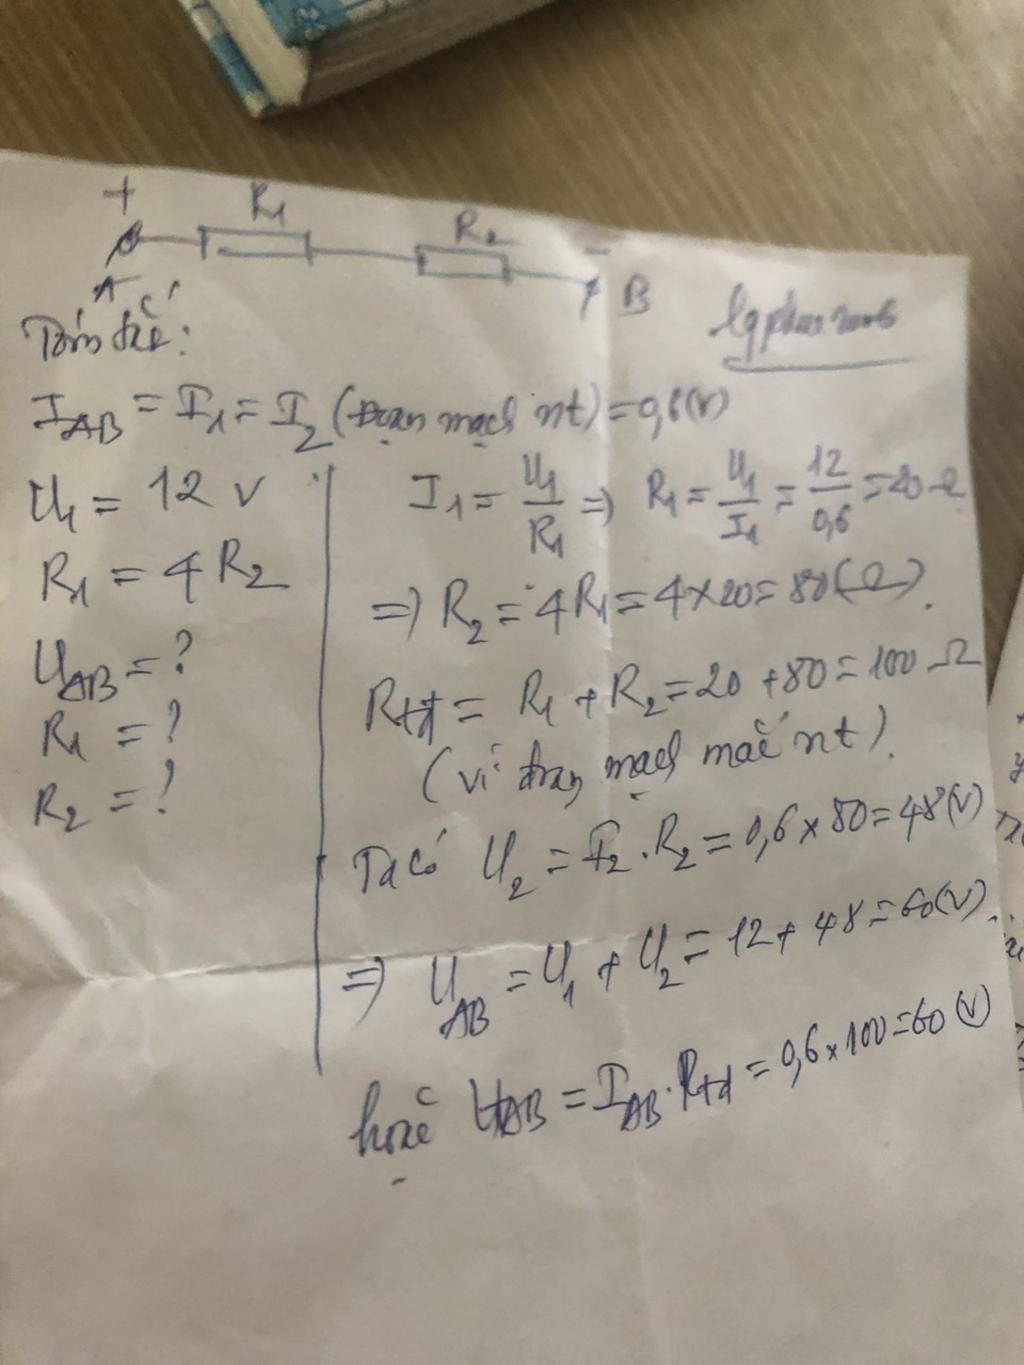 + R1 R2 -
A B
Tóm tắt:
I_AB = I_1 = I_2 (Đoạn mạch nt) = 0,6(V)
U_1 = 12 V
R_1 = 4 R_2
U_AB = ?
R_1 = ?
R_2 = ?
I_1 = U_1/R_1 => R_1 = U_1/I_1 = 12/0,6 = 20 Ω
=> R_2 = 4R_1 = 4×20 = 80(Ω).
R_tđ = R_1 + R_2 = 20 + 80 = 100 Ω
(vì đoạn mạch mắc nt).
Ta có U_2 = I_2 . R_2 = 0,6 × 80 = 48(V)
=> U_AB = U_1 + U_2 = 12 + 48 = 60(V).
hoặc U_AB = I_AB . R_tđ = 0,6 × 100 = 60(V)